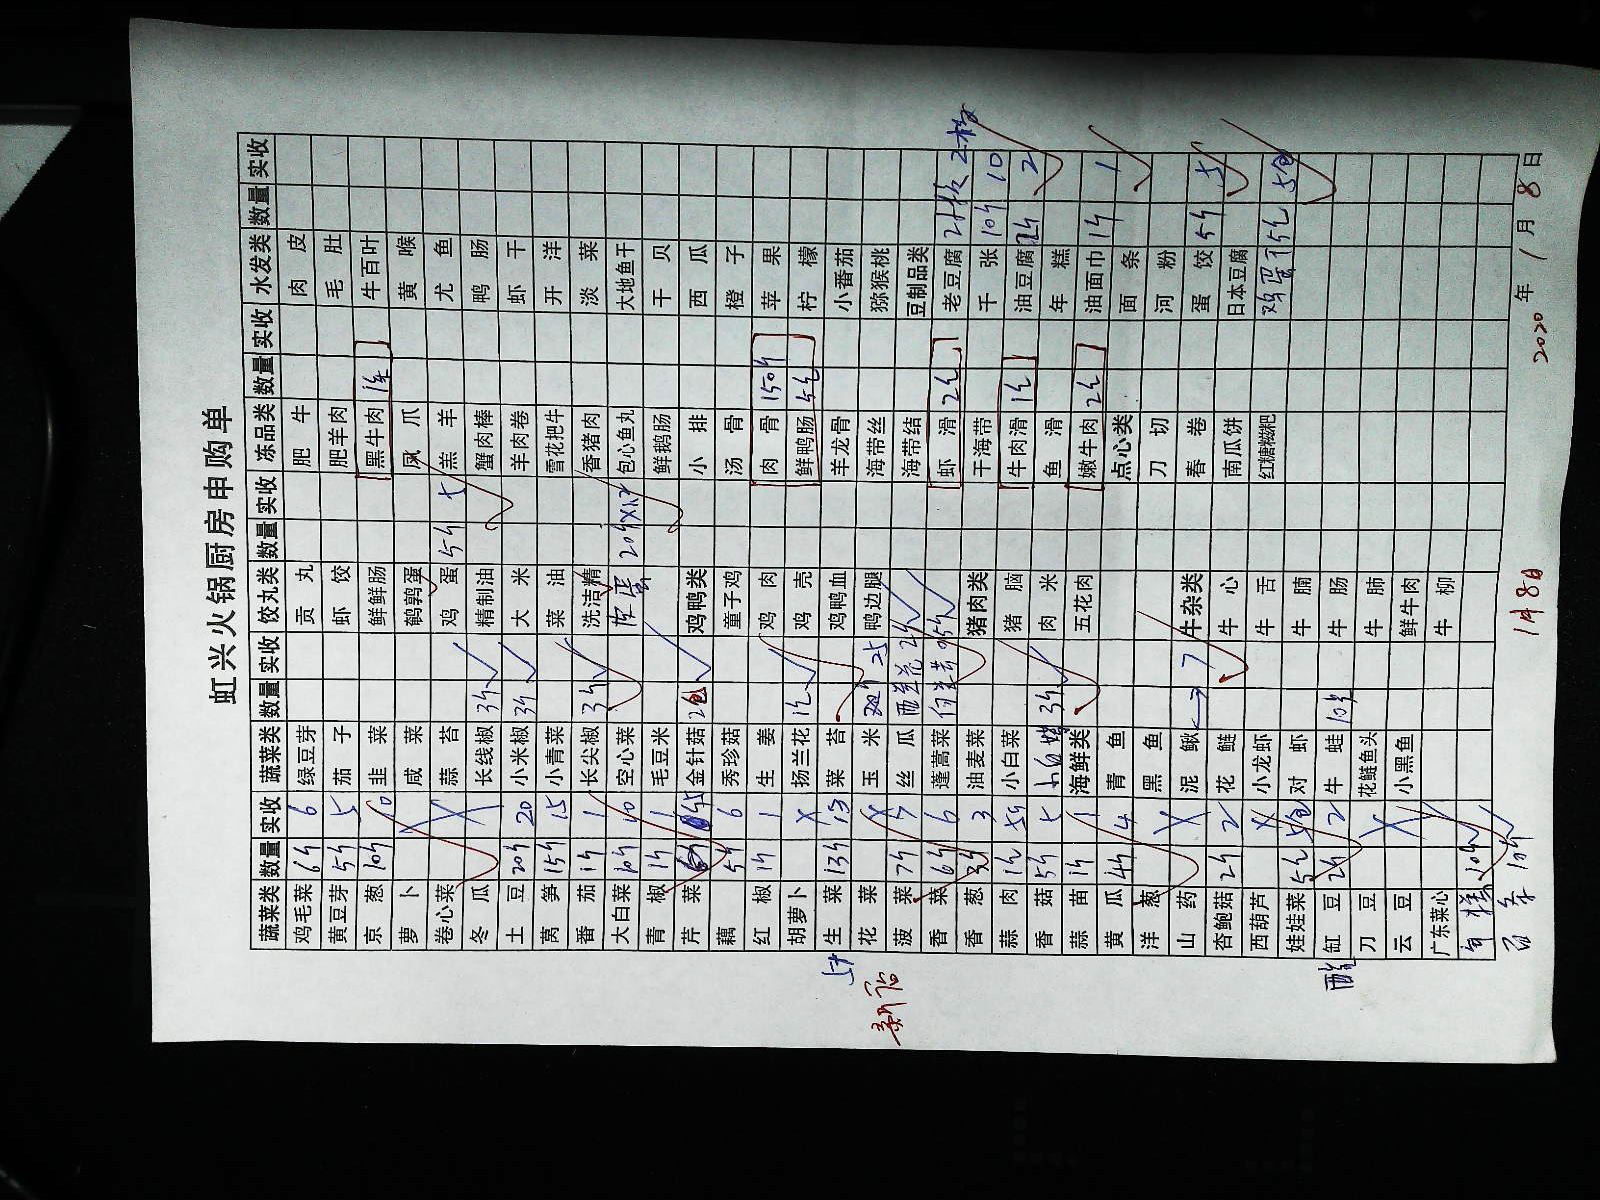 虹兴火锅厨房申购单
蔬菜类 数量 实收 蔬菜类 数量 实收 饺丸类 数量 实收 冻品类 数量 实收 水发类 数量 实收
鸡毛菜 6斤 6 绿豆芽 贡丸 肥牛 肉皮
黄豆芽 5斤 5 茄子 虾饺 肥羊肉 毛肚
京葱 10斤 10 韭菜 鲜鲜肠 黑牛肉 1件 牛百叶
萝卜 X 咸菜 鹌鹑蛋 凤爪 黄喉
卷心菜 X 蒜苔 鸡蛋 5斤 5 羔羊 尤鱼
冬瓜 X 长线椒 3斤 精制油 蟹肉棒 鸭肠
土豆 20斤 20 小米椒 3斤 大米 羊肉卷 虾干
莴笋 15斤 15 小青菜 菜油 雪花把牛 开洋
番茄 1斤 1 长尖椒 3斤 洗洁精 香猪肉 淡菜
大白菜 10斤 10 空心菜 皮蛋 包心鱼丸 大地鱼干
青椒 1斤 1 毛豆米 鲜鹅肠 干贝
芹菜 金针菇 2包 鸡鸭类 小排 西瓜
藕 5斤 6 秀珍菇 童子鸡 汤骨 橙子
红椒 1斤 1 生姜 鸡肉 肉骨 150斤 苹果
胡萝卜 X 扬兰花 1包 鸡壳 鲜鸭肠 5包 柠檬
生菜 13斤 13 菜苔 鸡鸭血 羊龙骨 小番茄
花菜 X 玉米 25 鸭边腿 海带丝 猕猴桃
菠菜 7斤 7 丝瓜 西兰花 2斤 海带结 豆制品类
香菜 6斤 6 蓬蒿菜 虾滑 2包 老豆腐 2板 2板
香葱 3斤 3 油麦菜 猪肉类 干海带 千张 10斤 10
蒜肉 1包 小白菜 猪脑 牛肉滑 1包 油豆腐 2斤 2
香菇 5斤 5 3斤 肉米 鱼滑 年糕
蒜苗 1斤 1 海鲜类 五花肉 嫩牛肉 2包 油面巾 1斤 1
黄瓜 4斤 4 青鱼 点心类 面条
洋葱 黑鱼 刀切 河粉
山药 X 泥鳅 7 牛杂类 春卷 蛋饺 5斤 5
杏鲍菇 2斤 2 花鲢 牛心 南瓜饼 日本豆腐
西葫芦 X 小龙虾 牛舌 红糖糍粑 鸡蛋干 5包 5包
娃娃菜 5包 5包 对虾 牛腩
酸 缸豆 2斤 2 牛蛙 10斤 牛肠
刀豆 花鲢鱼头 牛肺
云豆 X 小黑鱼 鲜牛肉
广东菜心 牛柳
年糕 10斤
10斤 1月8日 2020年1月8日